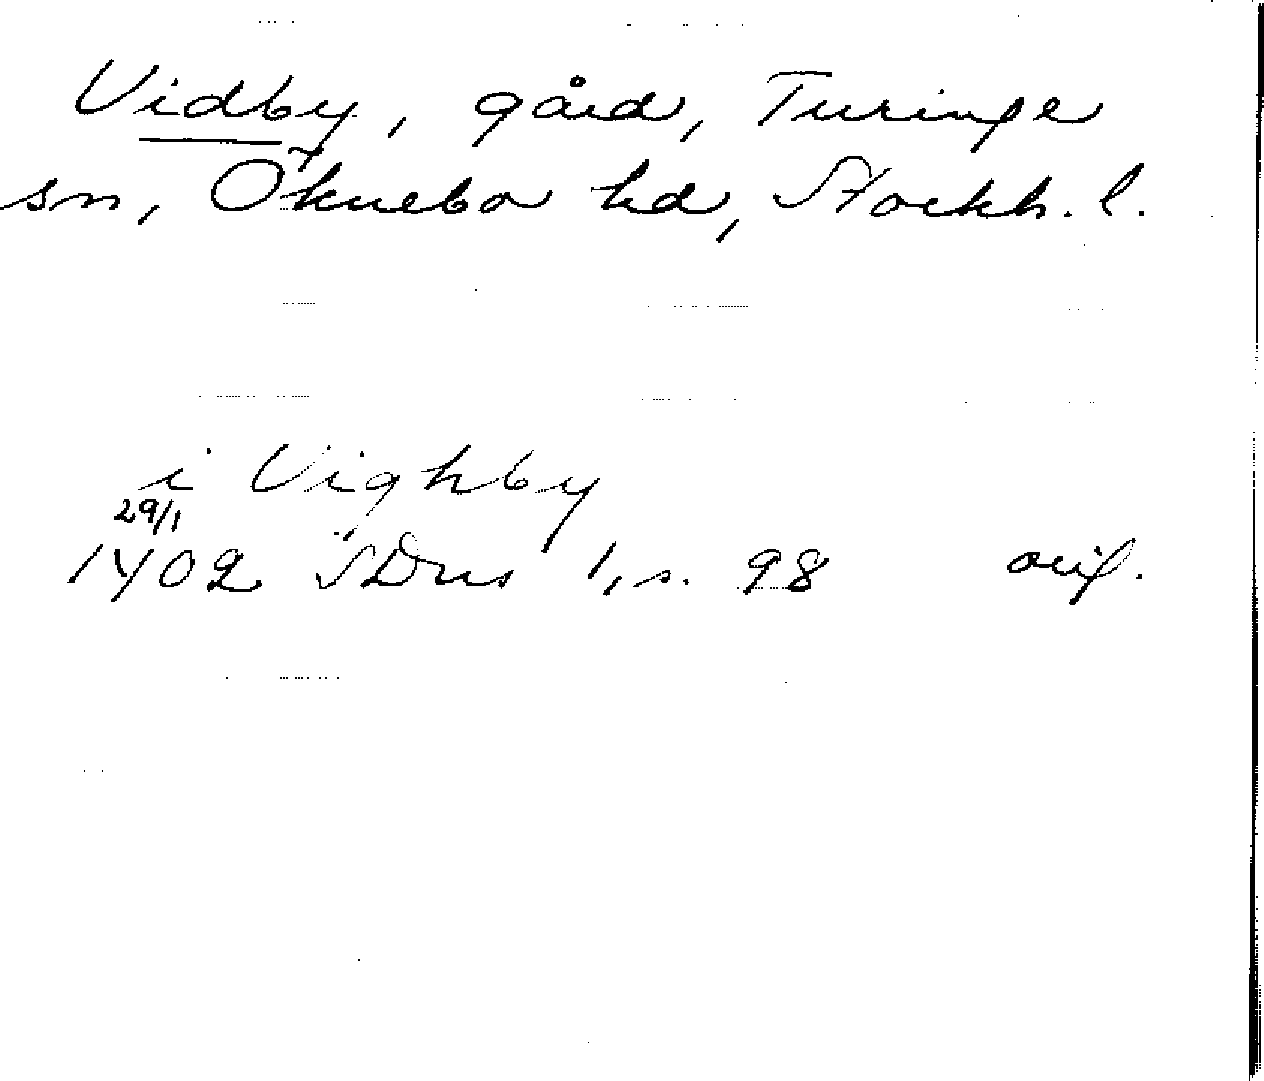 Vidby, gård, Turinge
sn, Öknebo hd, Stockh. l.
i Vighby
29/1
1402 SDns 1, s. 98 orig.